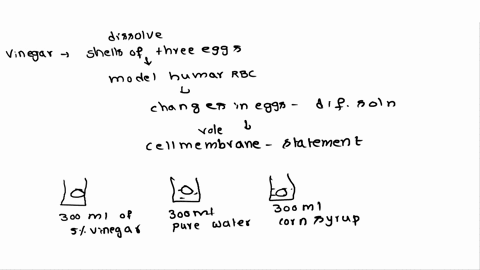 dissolve
vinegar → shells of three eggs
model human RBC
changes in eggs - dif. soln
role
cell membrane - statement
300 ml of 5% vinegar
300 ml pure water
300 ml corn syrup